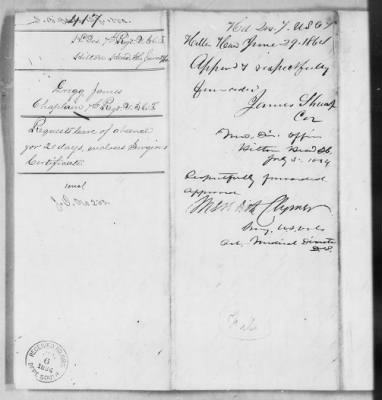 417
Hilton Head
Gregg James
Chaplain, 7th Regt U.S.C.T.
Requests leave of absence
for 20 days, encloses Surgeons
Certificate.
Hd Qrs. 7. U.S.C.T.
Hilton Head June 29. 1864
Approved & respectfully
forwarded
James Shaw Jr
Col
Med. Dir. Office
Hilton Head S.C.
July 5. 1864
Respectfully forwarded
approved
Meredith Clymer
Surg. U.S. Vols
Medical Director
D.S.
RECEIVED
6
1864
SOUTH